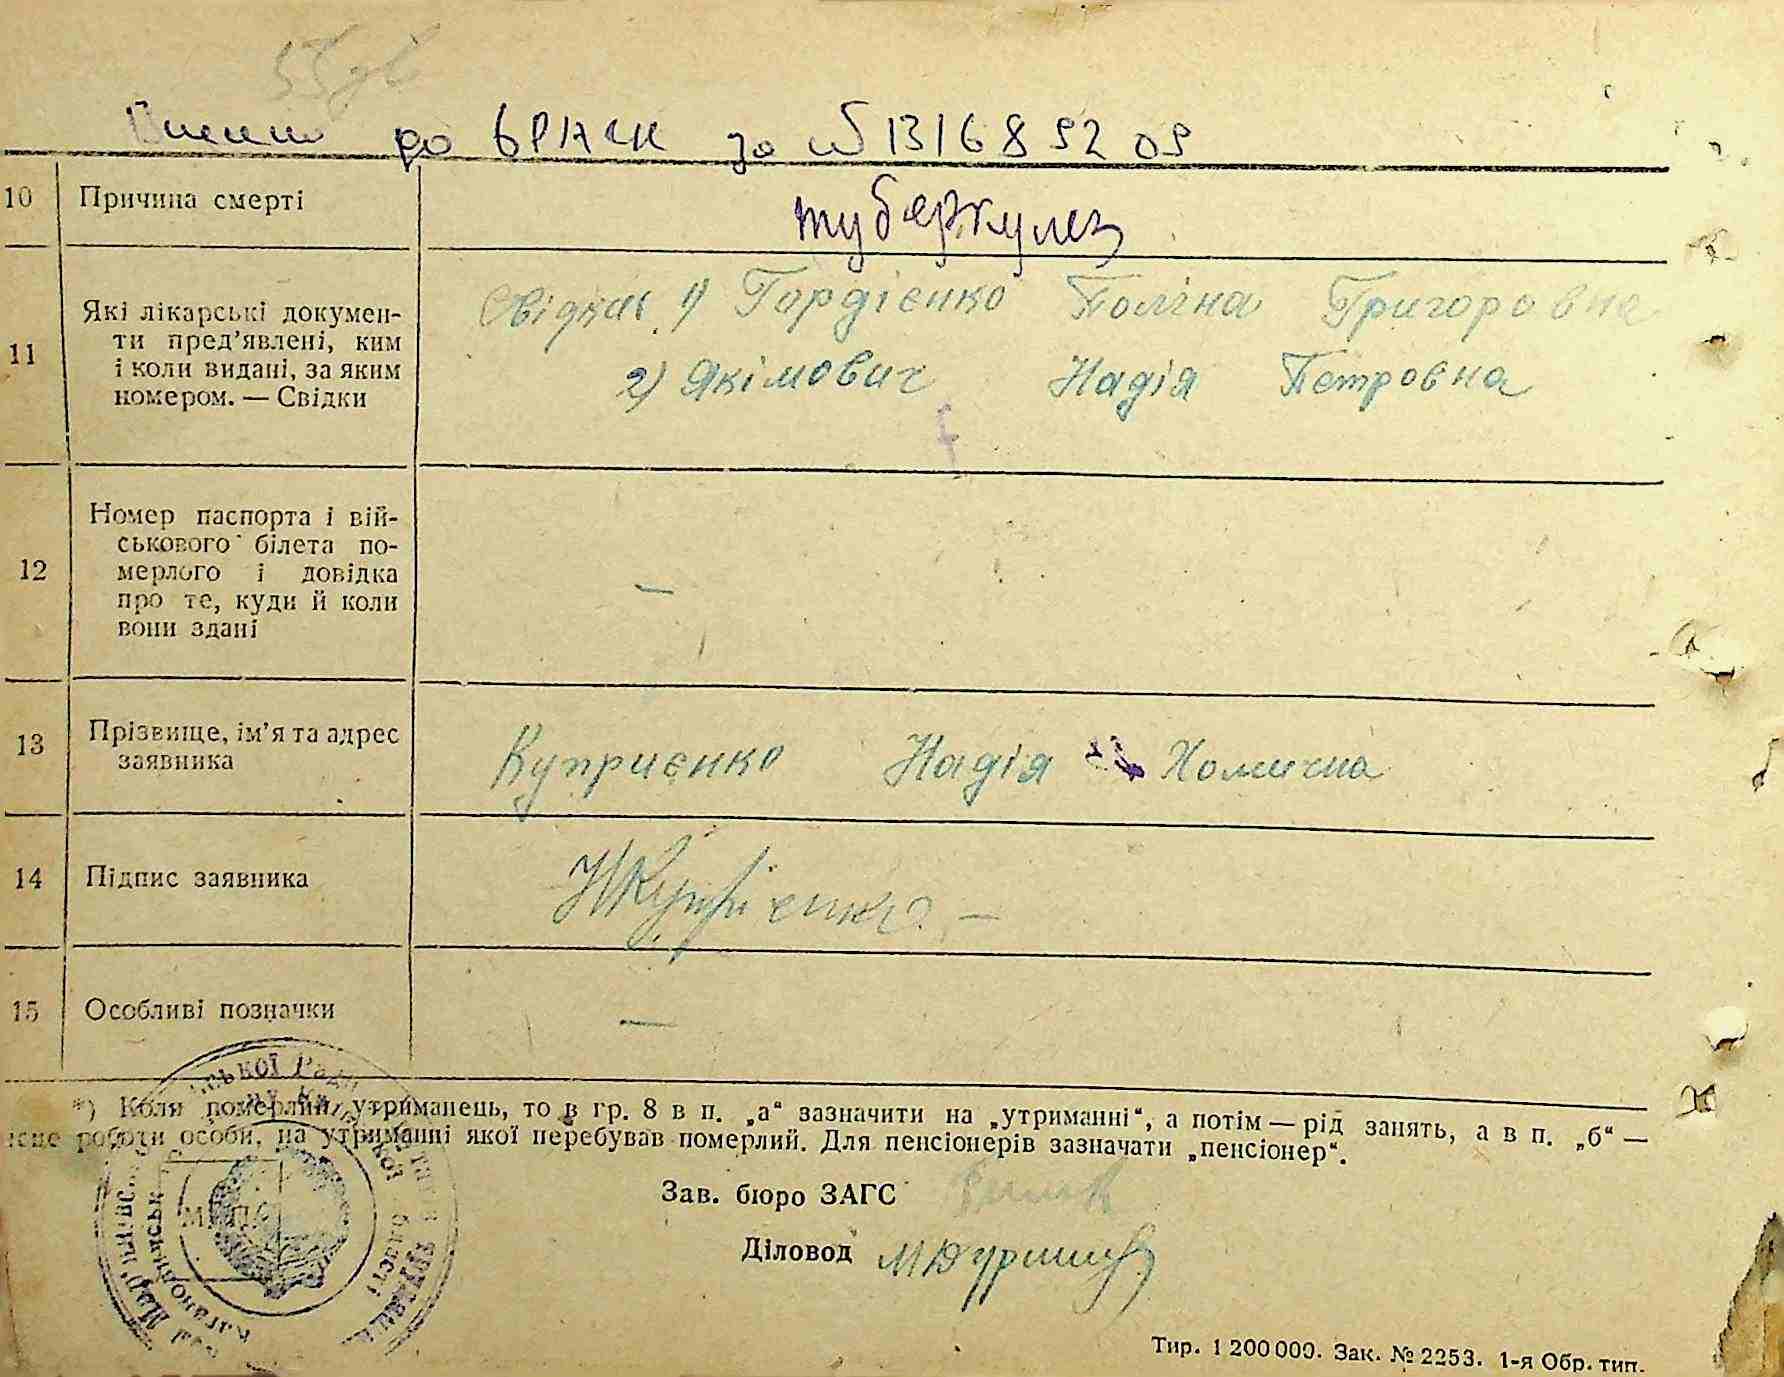 до ВРАЦС за № 1316892 09
10 Причина смерті туберкулез
11 Які лікарські докумен-
ти пред'явлені, ким
і коли видані, за яким
номером. — Свідки
Свідкі 1) Гордієнко Поліна Григоровна
2) Якімович Надія Петровна
12 Номер паспорта і вій-
ськового білета по-
мерлого і довідка
про те, куди й коли
вони здані
—
13 Прізвище, ім'я та адрес
заявника
Куприєнко Надія Хомична
14 Підпис заявника НКупрієнко —
15 Особливі позначки —
*) Коли померлий утриманець, то в гр. 8 в п. „а“ зазначити на „утриманні“, а потім — рід занять, а в п. „б“ —
роботи особи, на утриманні якої перебував померлий. Для пенсіонерів зазначати „пенсіонер“.
Зав. бюро ЗАГС
Діловод
Тир. 1 200 000. Зак. № 2253. 1-я Обр. тип.